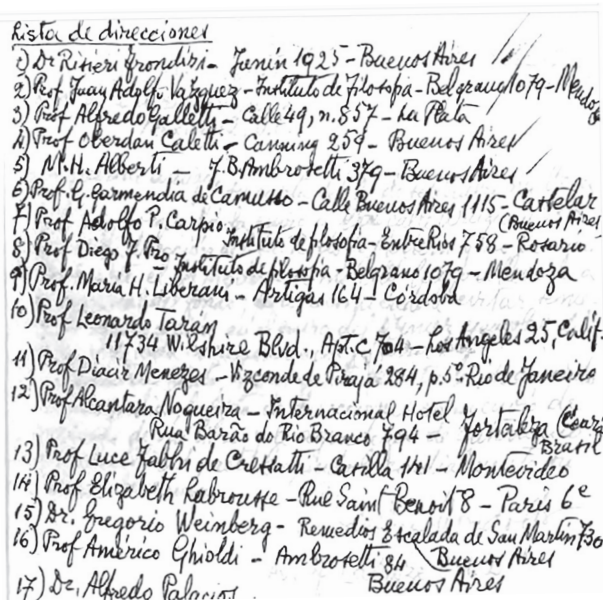 Lista de direcciones
1) Dr Risieri Frondizi - Junín 1925 - Buenos Aires
2) Prof. Juan Adolfo Vazquez - Instituto de Filosofia - Belgrano 1079 - Mendoza
3) Prof Alfredo Galletti - Calle 49, n. 857 - La Plata
4) Prof Oberdan Caletti - Canning 259 - Buenos Aires
5) M.H. Alberti - J.B. Ambrosetti 379 - Buenos Aires
6) Prof. G. Garmendia de Camusso - Calle Buenos Aires 1115 - Castelar
(Buenos Aires
7) Prof Adolfo P. Carpio Instituto de filosofia - Entre Rios 758 - Rosario
8) Prof Diego F. Pro Instituto de filosofia - Belgrano 1079 - Mendoza
9) Prof. Maria H. Liberani - Artigas 164 - Córdoba
10) Prof Leonardo Tarán
11734 Wilshire Blvd., Apt. C 704 - Los Angeles 25, Calif.
11) Prof Djacir Menezes - Vizconde de Pirajá 284, p. 5º Rio de Janeiro
12) Prof Alcantara Nogueira - Internacional Hotel
Rua Barão do Rio Branco 794 - Fortaleza (Ceará
Brasil
13) Prof Luce Fabbri de Cressatti - Casilla 141 - Montevideo
14) Prof Elizabeth Labrousse - Rue Saint Benoit 8 - Paris 6e
15) Dr. Gregorio Weinberg - Remedios Escalada de San Martin 730
Buenos Aires
16) Prof Américo Ghioldi - Ambrosetti 84
Buenos Aires
17) Dr. Alfredo Palacios